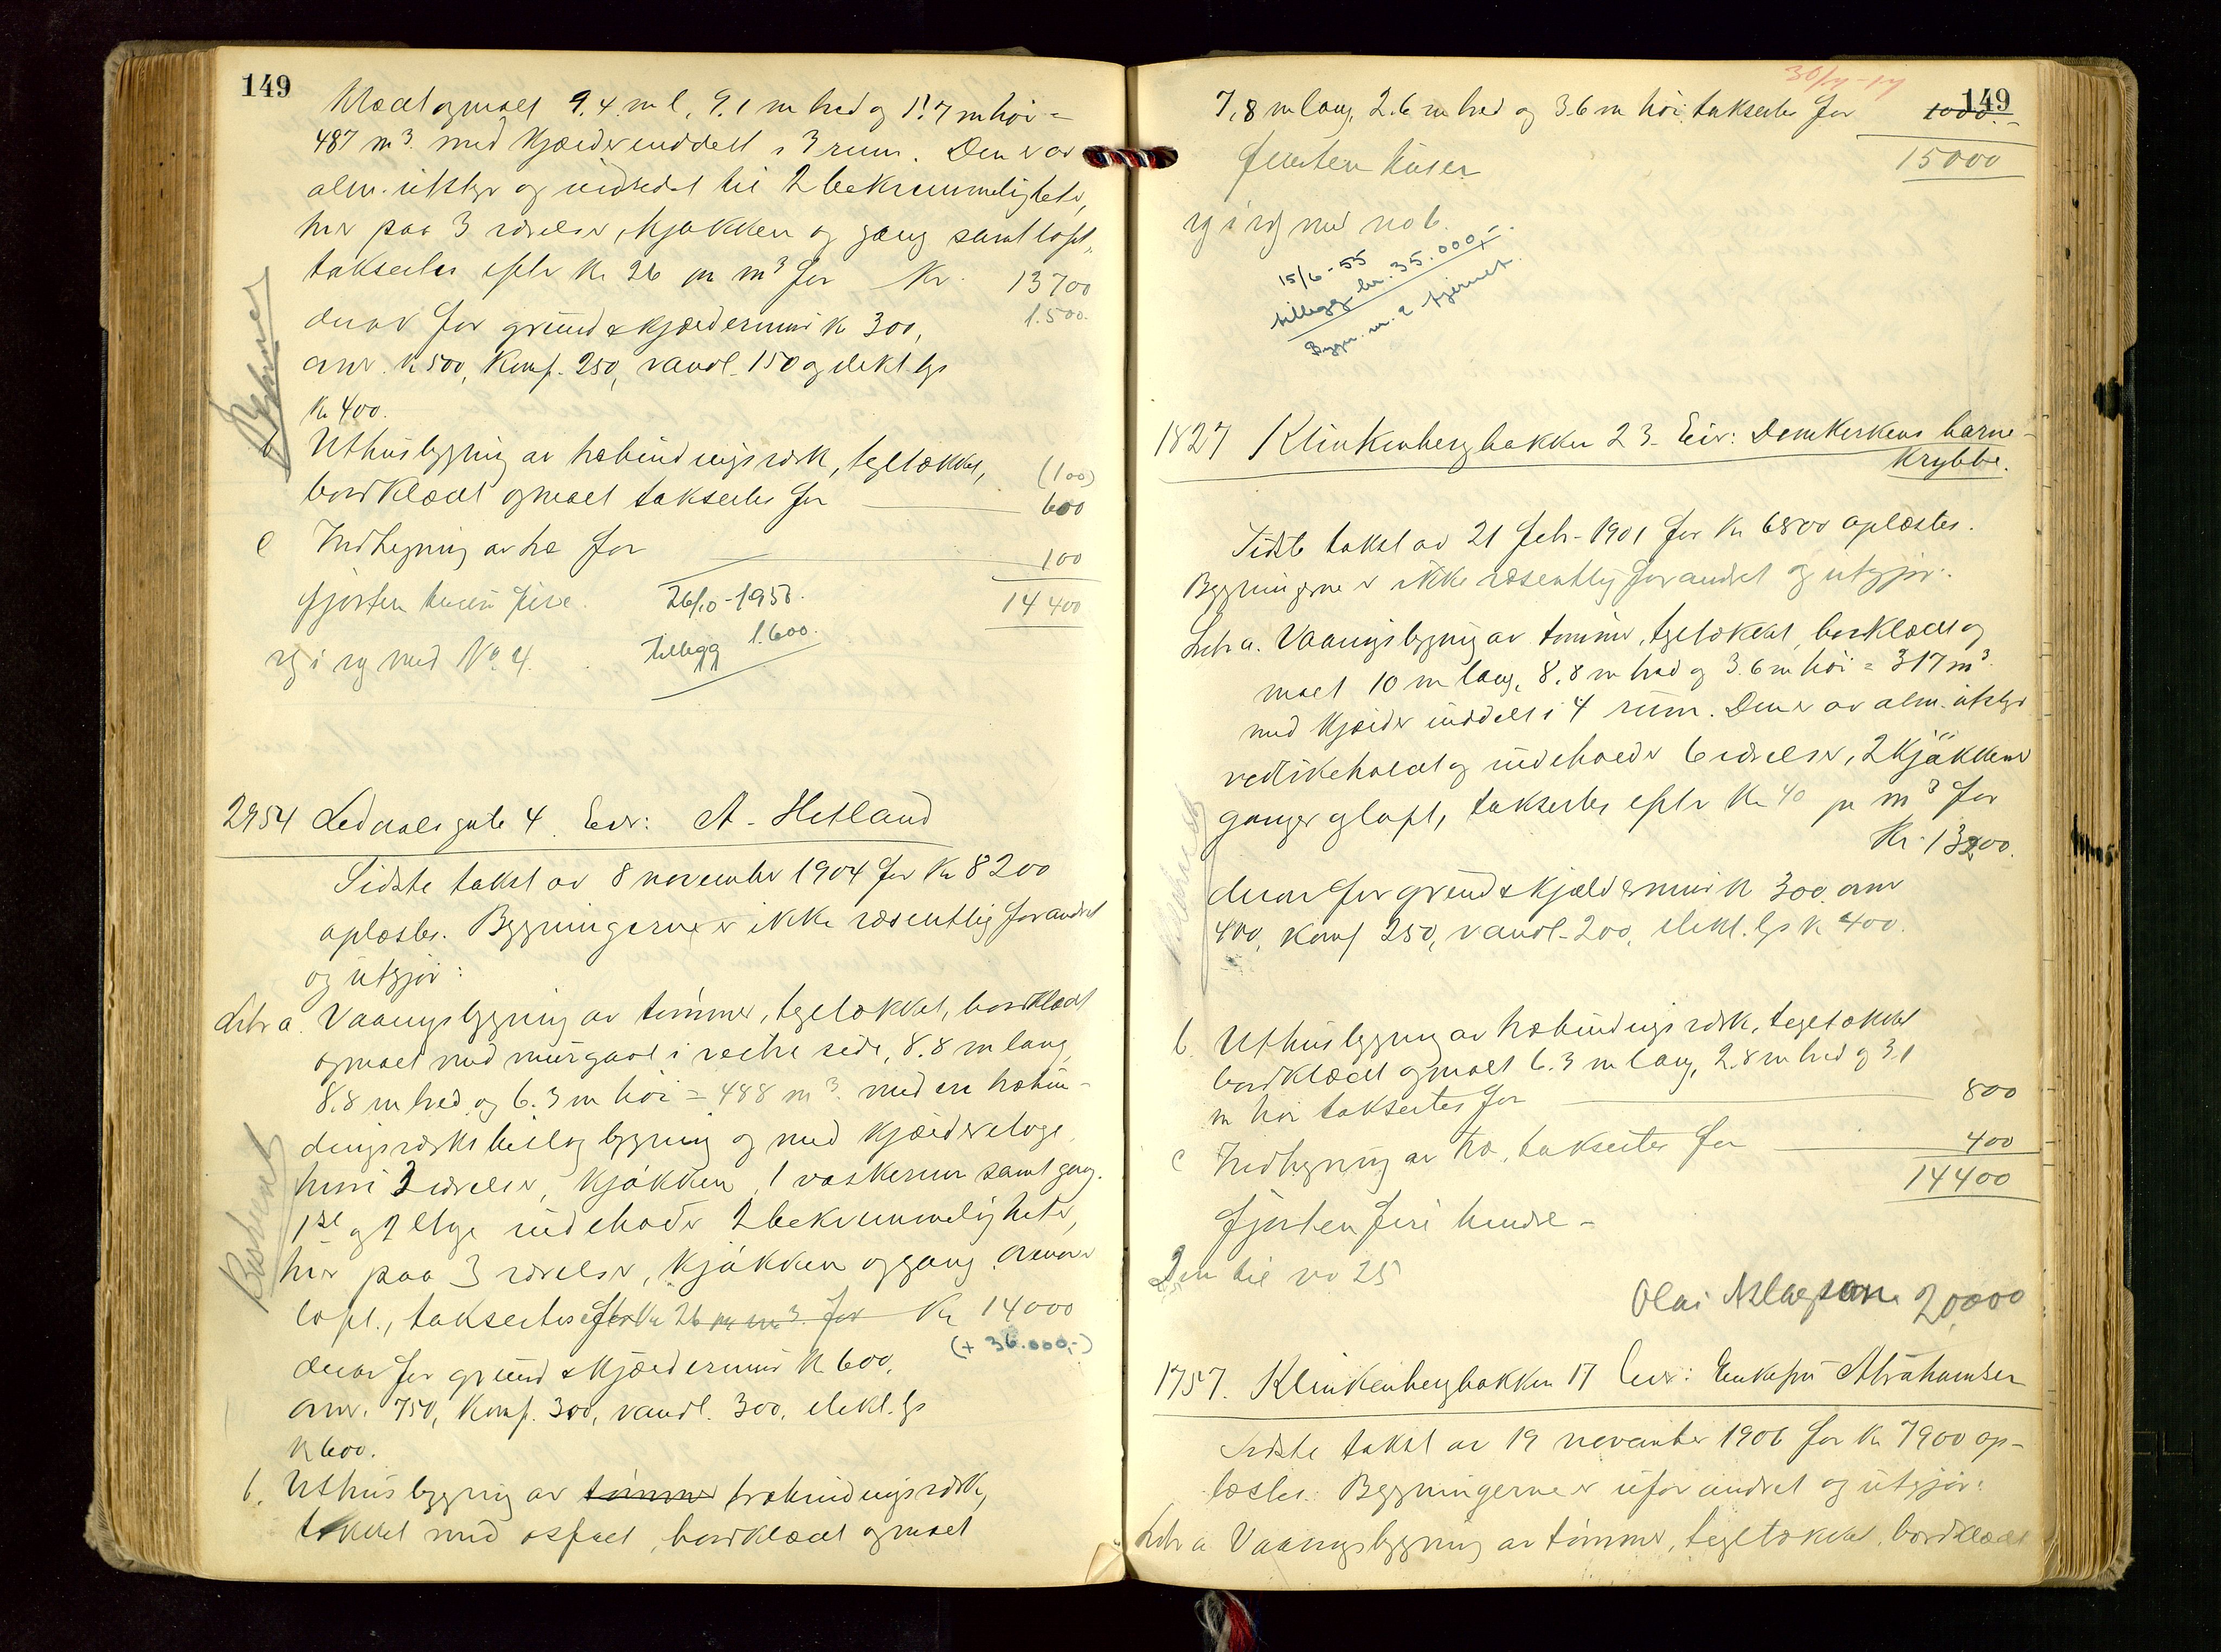 149
klædt og malt 9.4 m l, 9.1 m bred og 5.7 m høi =
487 m³ med kjælder inddelt i 3 rum. Den er av
alm. utstyr og indredet til 2 bekvemmeligheter,
hver paa 3 værelser, kjøkken og gang samt loft,
taksertes efter kr 26 pr m³ for Kr. 13700
1.500.
derav for grund & kjældermur kr 300,
ovner kr 500, komf. 250, vandl. 150 og elekt. lys
kr 400.
b Uthusbygning av træbindingsverk, tegltækket, (100)
bordklædt og malt taksertes for 600
c Indhegning av træ for 100
fjorten tusen fire 26/10-1950. 14400
rg i rg med No. 4. tillegg 1.600.
2954 Ledaalsgate 4. Eier: A. Hetland
Sidste takst av 8 november 1904 for Kr 8200
oplæstes. Bygningerne er ikke væsentlig forandret
og utgjør:
Litr a. Vaaningsbygning av tømmer, tegltækket, bordklædt
og malt med murgavl i vestre side, 8.8 m lang,
8.8 m bred og 6.3 m høi = 488 m³ med en træbin-
dingsverks tilbygning og med kjælderetage
hvori 2 værelser, kjøkken, 1 vaskerum samt gang.
1ste og 2 etage indeholder 2 bekvemmeligheter,
hver paa 3 værelser, kjøkken og gang. Ovenover
loft., taksertes efter Kr 26 pr m³. for Kr 14000
(+ 36.000,-)
derav for grund & kjældermur kr 600,
ovner. 750, komf. 300, vandl. 300, elekt. lys
kr 600.
b. Uthusbygning av tømmer træbindingsverk,
tækket med asfalt, bordklædt og malt
149
7.8 m lang, 2.6 m bred og 3.6 m høi, taksertes for 1000.-
femten tusen 15000
rg i rg med no 6.
15/6-55
tillegg kr. 35.000,-.
Bygn. nr. 2 fjernet.
1827 Klinkenbergbakken 23. Eier: Domkirkens barne-
krybbe.
Sidste takst av 21 feb. 1901 for Kr 6800 oplæstes.
Bygningerne er ikke væsentlig forandret og utgjør.
Litr a. Vaaningsbygning av tømmer, tegltækket, bordklædt og
malt 10 m lang, 8.8 m bred og 3.6 m høi = 317 m³.
med kjælder inddelt i 4 rum. Den er av alm. utstyr
vedlikeholdt og indeholder 6 værelser, 2 kjøkkener
ganger og loft, taksertes efter Kr 40 pr m³ for
Kr. 13200.
derav for grund & kjældermur kr 300. ovner
400, komf 250, vandl. 200, elekt. lys kr 400.
b. Uthusbygning av træbindingsverk, tegltækket
bordklædt og malt 6.3 m lang, 2.8 m bred og 3.1
m høi taksertes for 800
c Indhegning av træ, taksertes for 400
14400
fjorten fire hundre -
2 m til no 25
Olai Aslagsson 20000
1757. Klinkenbergbakken 17 Eier: Enkefru Abrahamsen
Sidste takst av 19 november 1906 for Kr 7900 op-
læstes. Bygningerne er uforandret og utgjør:
Litr a Vaaningsbygning av tømmer, tegltækket, bordklædt